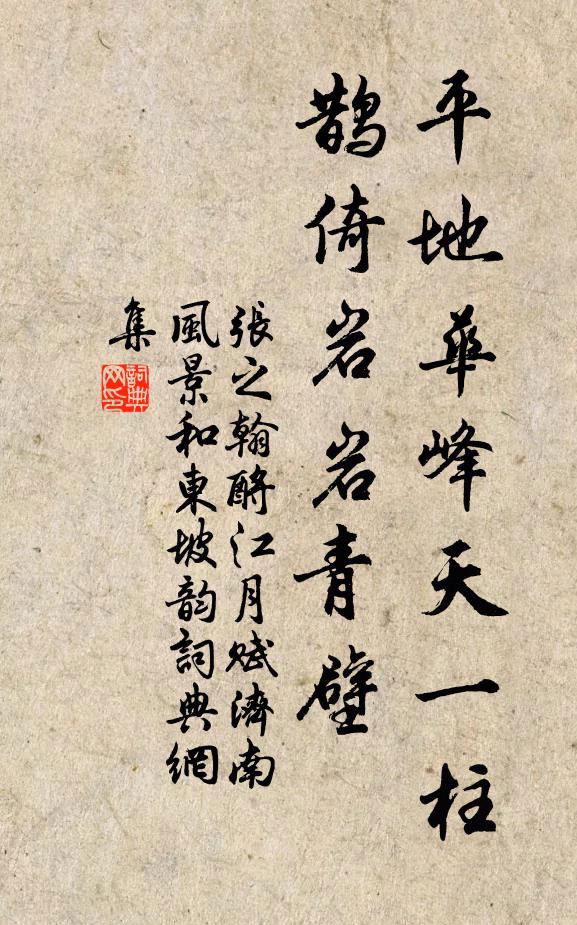 平地華峰天一柱
鵲倚岩岩青壁
張之翰酹江月賦濟南
風景和東坡韵詞典網
集
詞典網印